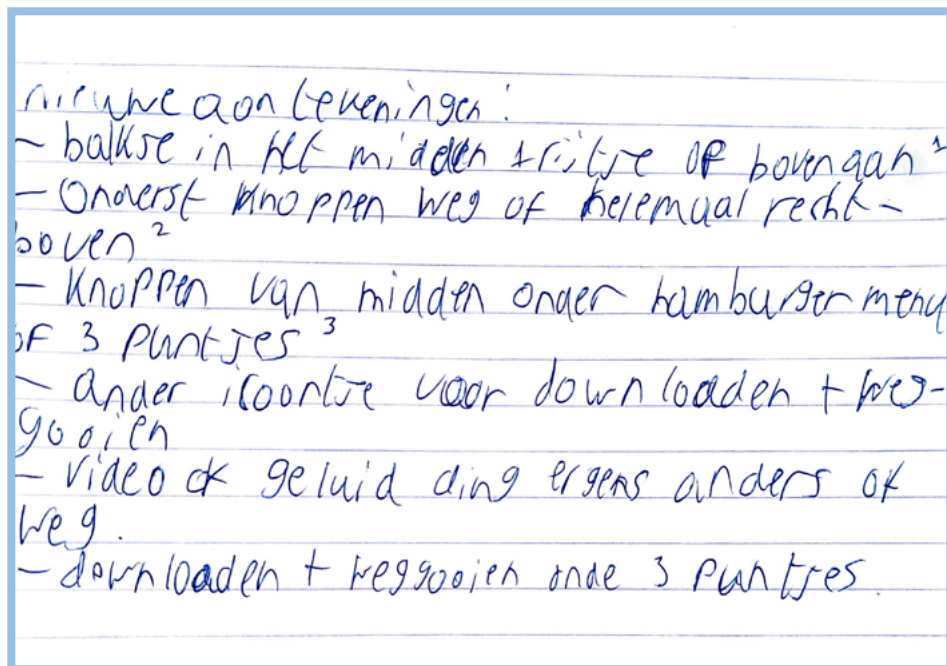 nieuwe aantekeningen:
- balkje in het midden 1 rijtje of bovenaan ¹
- Onderst knoppen weg of helemaal recht-
boven ²
- Knoppen van midden onder hamburger menu
of 3 puntjes ³
- ander icoontje voor downloaden + weg-
gooien
- video of geluid ding ergens anders of
weg.
- downloaden + weggooien onde 3 puntjes.